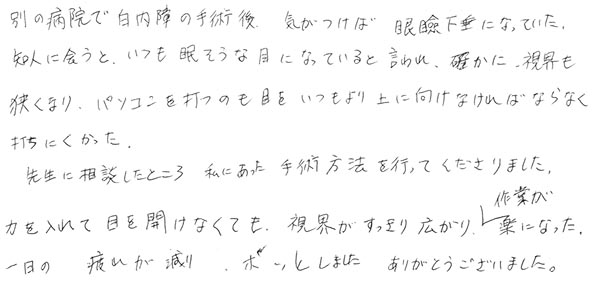 別の病院で白内障の手術後、気がつけば 眼瞼下垂になっていた。
知人に会うと、いつも眠そうな目になっていると言われ、確かに、視界も
狭くなり、パソコンを打つのも目をいつもより上に向けなければならなく
打ちにくかった。
先生に相談したところ 私にあった手術方法を行ってくださりました。
力を入れて目を開けなくても、視界がすっきり広がり、作業が楽になった。
一日の 疲れが減り、ホーッとしました ありがとうございました。